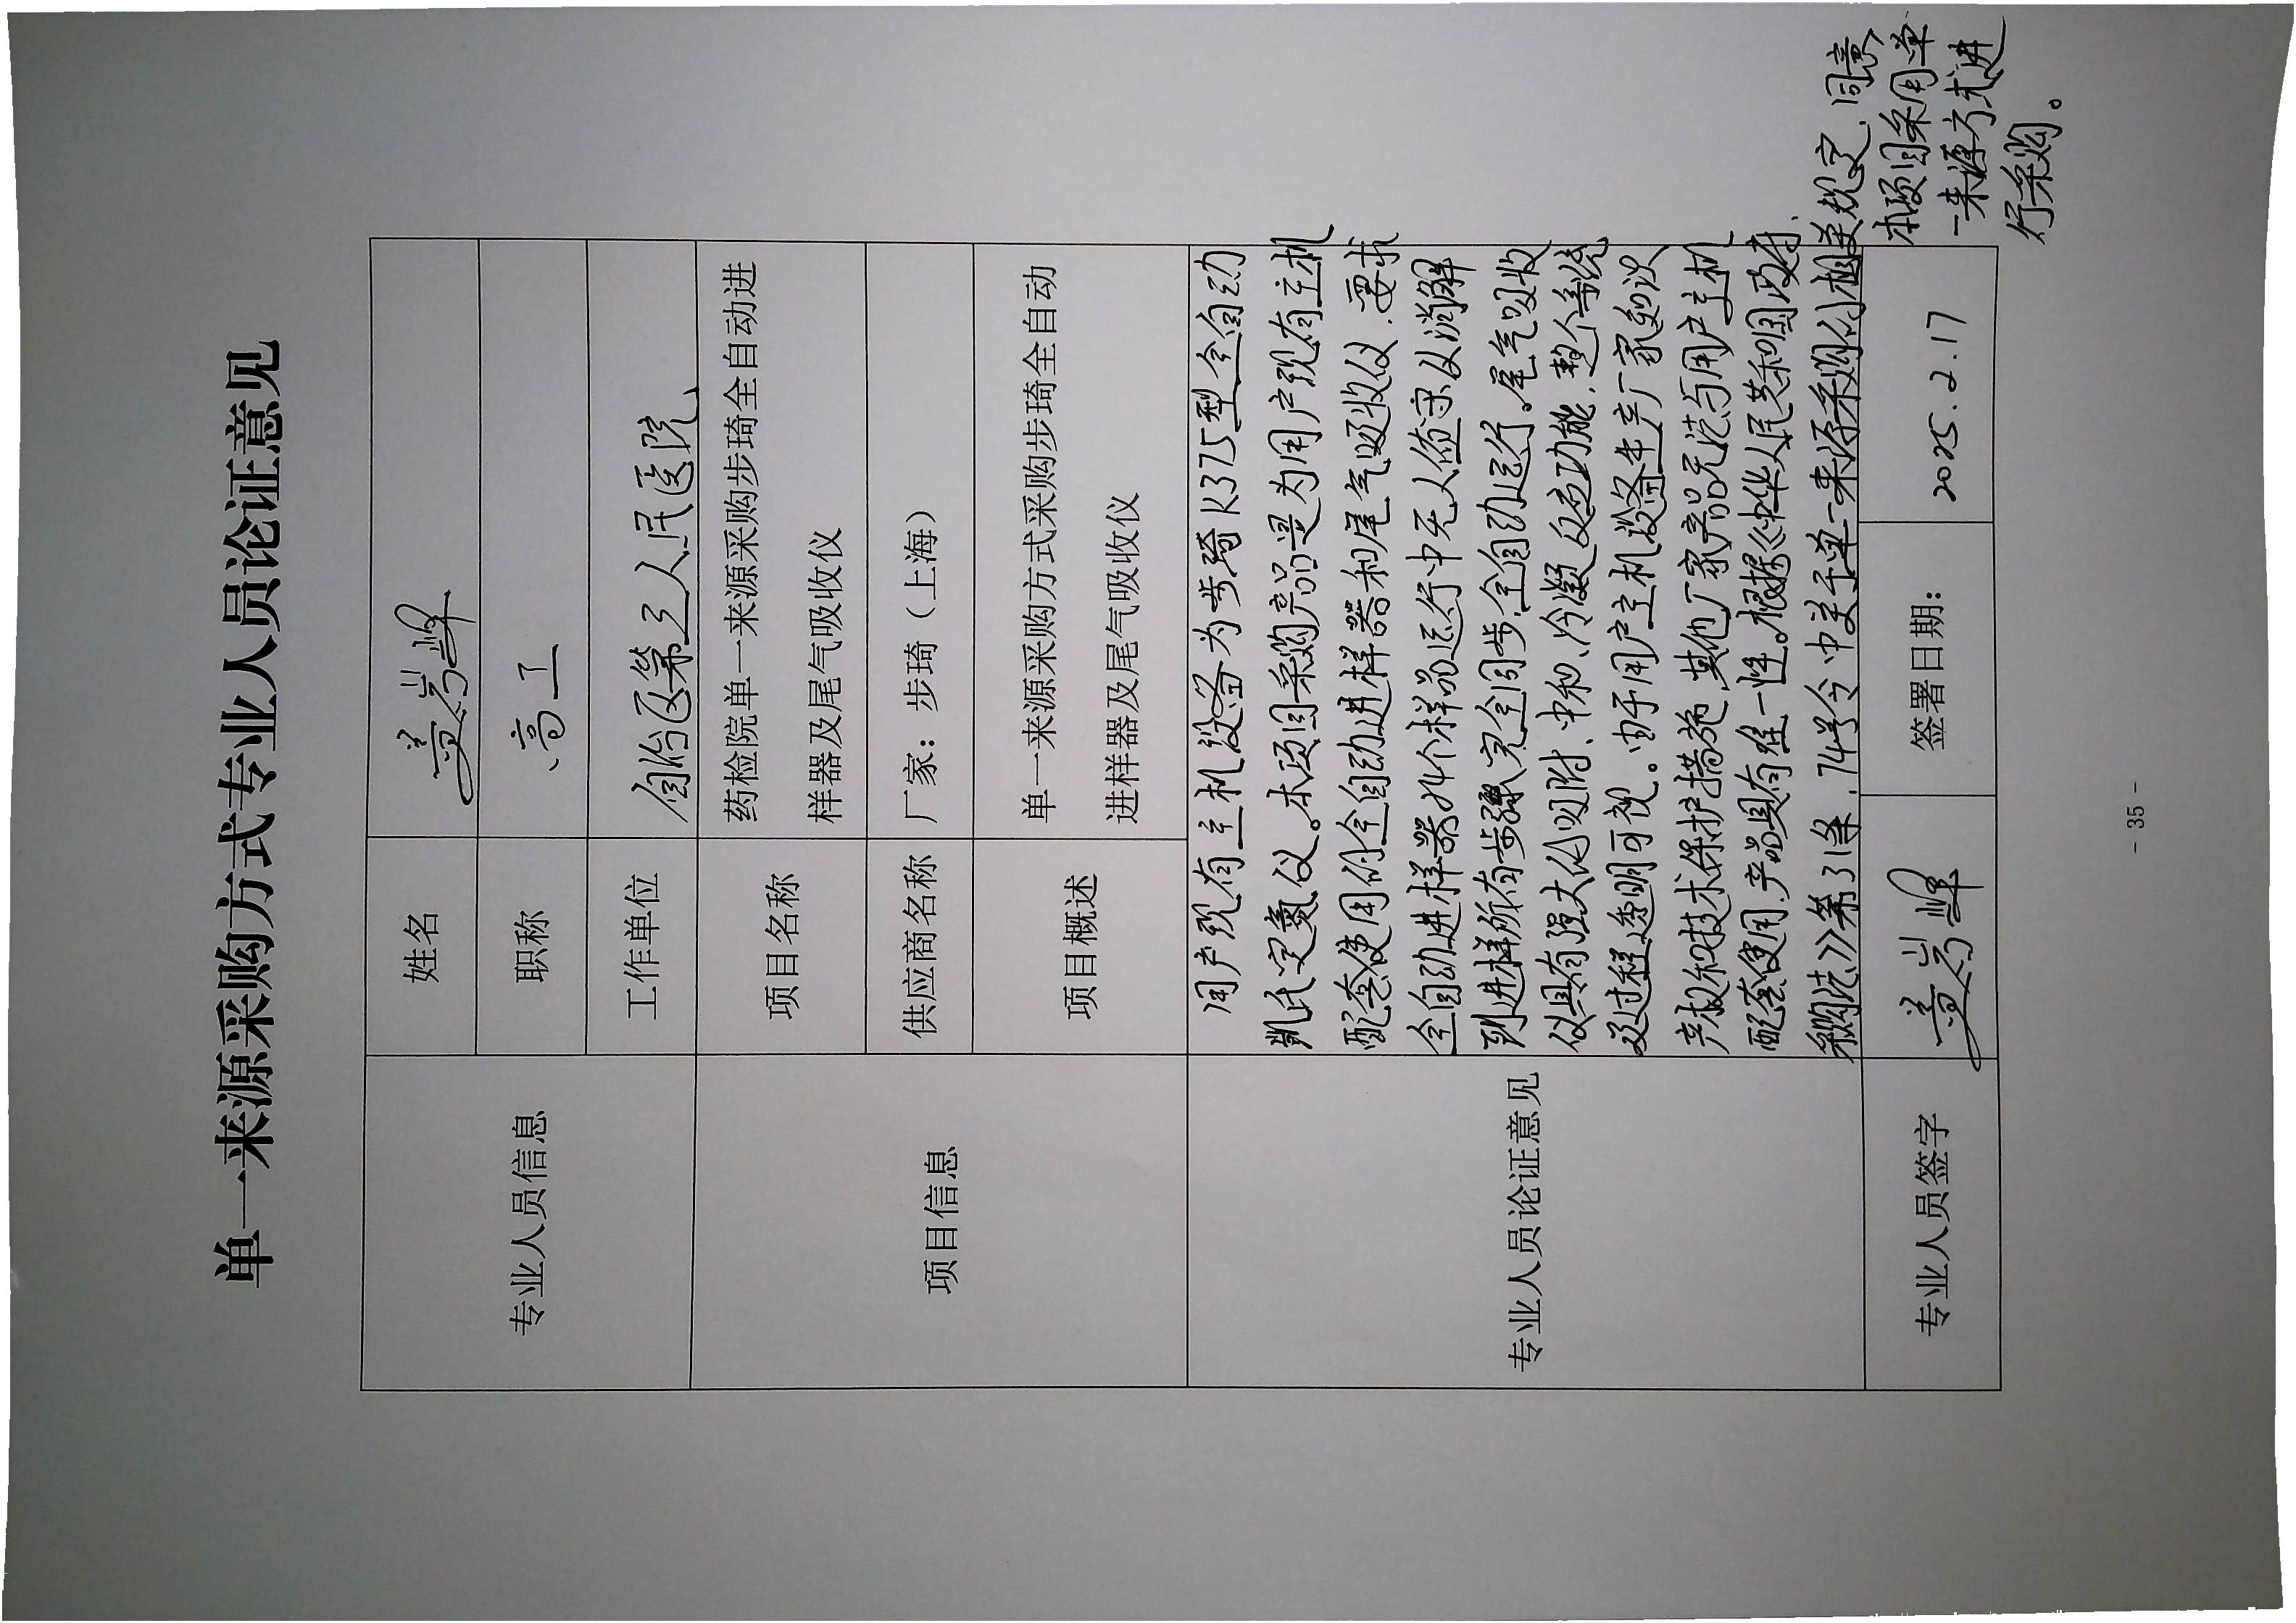 单一来源采购方式专业人员论证意见
专业人员信息
姓名
职称
高工
工作单位
自治区第三人民医院
项目信息
项目名称
药检院单一来源采购步琦全自动进
样器及尾气吸收仪
供应商名称
厂家：步琦（上海）
项目概述
单一来源采购方式采购步琦全自动
进样器及尾气吸收仪
专业人员论证意见
用户现有主机设备为步琦K375型全自动
凯氏定氮仪。本项目采购产品是为用户现有主机
配套使用的全自动进样器和尾气吸收仪，要求
全自动进样器24个样品运行中无人值守从消解
到进样所有步骤完全同步，全自动运行。尾气吸收
仪具有强大的吸附、中和、冷凝反应功能，整个系统
反过程透明可视。由于用户主机设备生产厂家知识
产权和技术保护措施，其他厂家产品无法与用户主机
配套使用，产品具有唯一性。根据《中华人民共和国政府
采购法》第31条，74号令中关于单一来源采购的相关规定，同意
本项目采用单
一来源方式进
行采购。
专业人员签字
签署日期：
2025.2.17
- 35 -